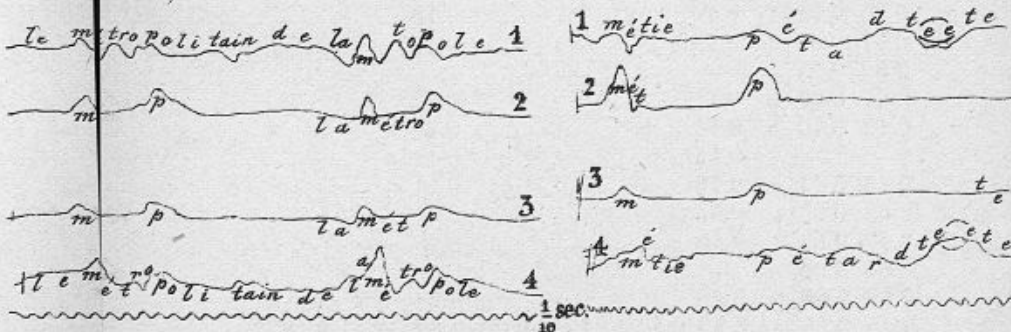 le m tropolitain de la m topole 1
m p la métro p 2
m p la mét p 3
le metropolitain de la métropole 4
1 métie pétadteete
2 mét p
3 m p te
4 métie pétardteete
1/10 sec.